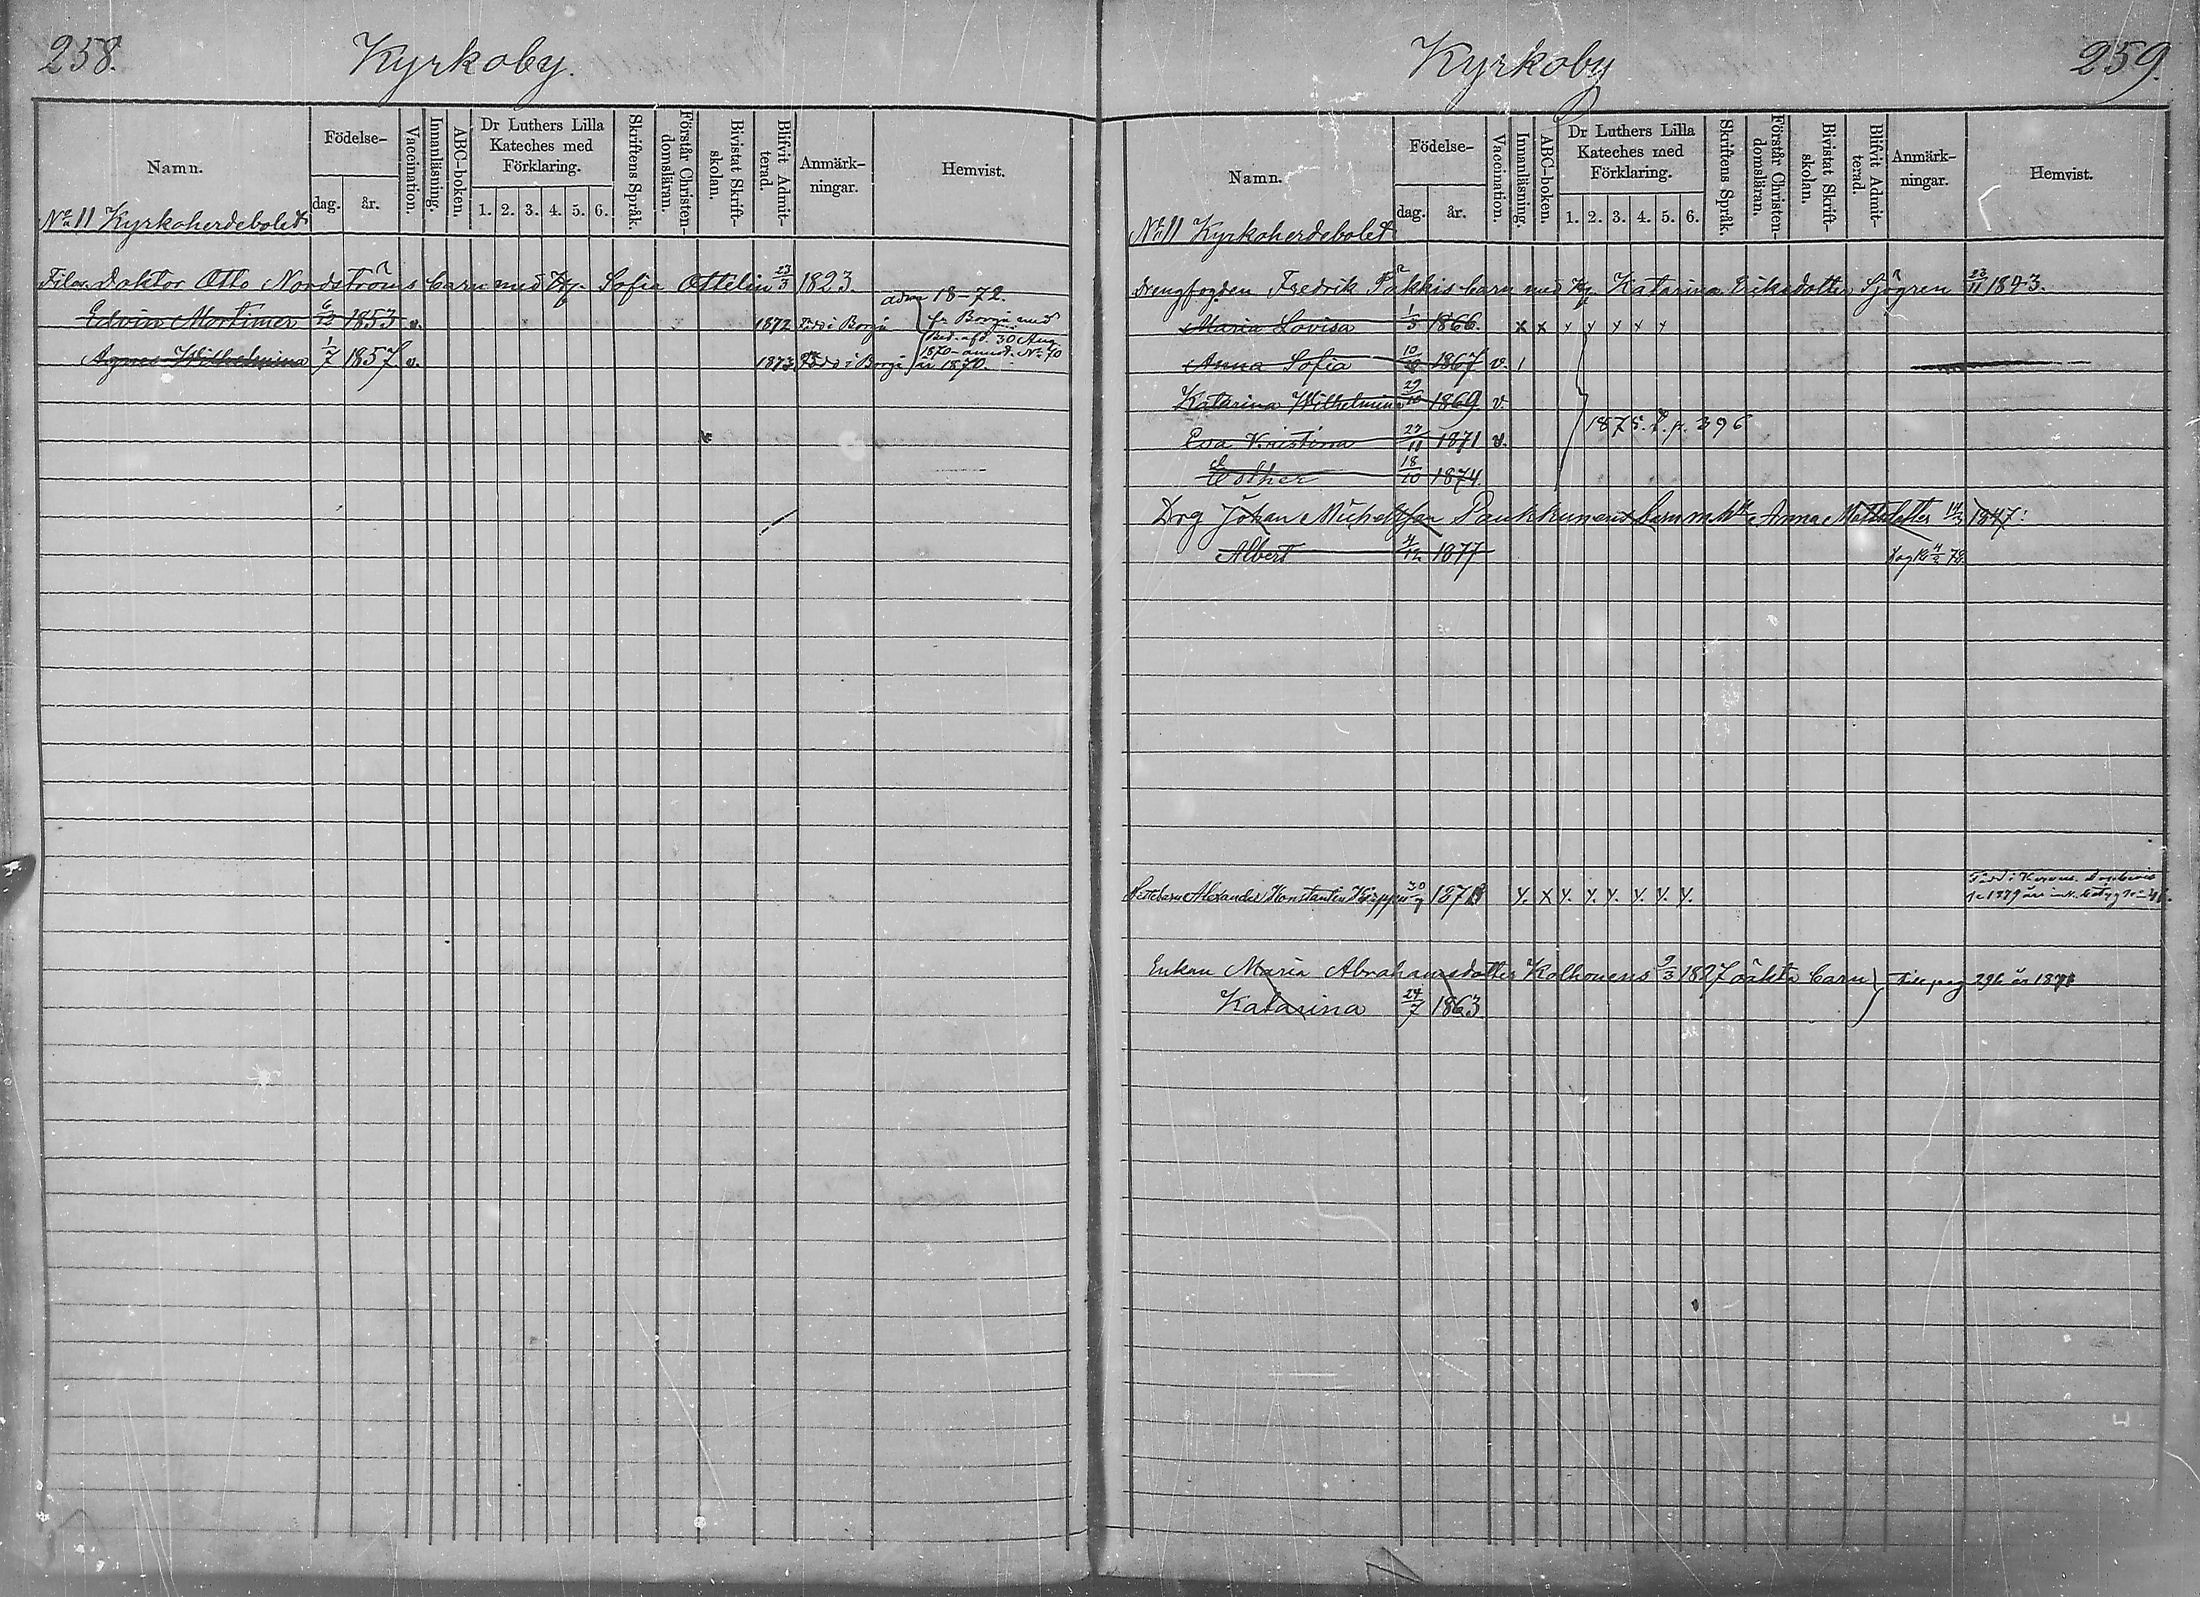 258.
Kyrkoby.
Namn.
Födelse-
dag.
år.
Vaccination.
Innanläsning.
ABC-boken.
Dr Luthers Lilla
Kateches med
Förklaring.
1. 2. 3. 4. 5. 6.
Skriftens Språk.
Förstår Christen-
domsläran.
Bivistat Skrift-
skolan.
Blifvit Admit-
terad.
Anmärk-
ningar.
Hemvist.
No 11 Kyrkoherdebolet
Filos. Doktor Otto Nordströms barn med Sofia Ottelin 23/3 1823.
adm 18-72.
Edvin Mortimer 6/12 1853 v. 1872 Född i Borgå
fr Borgå med
30 Aug
Agnes Wilhelmina 1/7 1857 v. 1873 Född i Borgå
1870 No 70
1870.
Kyrkoby
259.
Namn.
Födelse-
dag.
år.
Vaccination.
Innanläsning.
ABC-boken.
Dr Luthers Lilla
Kateches med
Förklaring.
1. 2. 3. 4. 5. 6.
Skriftens Språk.
Förstår Christen-
domsläran.
Bivistat Skrift-
skolan.
Blifvit Admit-
terad.
Anmärk-
ningar.
Hemvist.
No 11 Kyrkoherdebolet
Drengfogden Fredrik barn med Katarina Eriksdotter Sjögren 23/11 1843.
Maria Lovisa 1/3 1866. x x y y y y y
Anna Sofia 1867 v. 1
Katarina Wilhelmina 29/10 1869 v.
1875. p. 396
Eva Kristina 1871 v.
Esther 18/10 1874.
Drg Johan Paukkunens barn m. h. Anna 1847.
Albert 4/12 1877
Alexander Konstantin 1871 y. x y. y. y. y. y. y.
Enkan Maria Abrahamsdotter Kolhonens 9/3 1827 oäkta barn
Till pag 296 år 1871
Katarina 24/7 1863